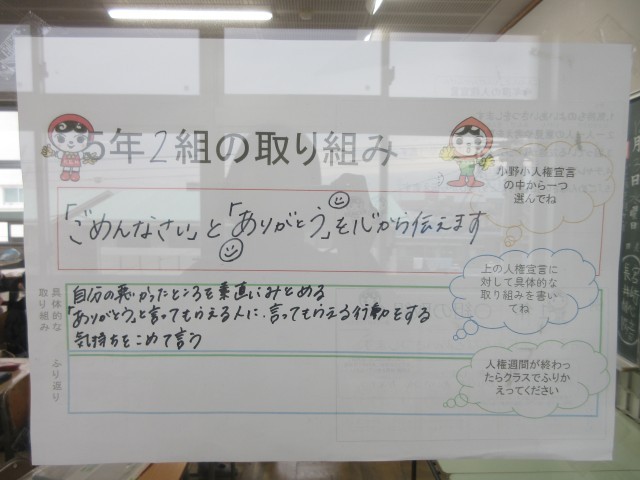 5年2組の取り組み
小野小人権宣言
の中から一つ
選んでね
「ごめんなさい」と「ありがとう」を心から伝えます
上の人権宣言に
対して具体的な
取り組みを書い
てね
具体的な
取り組み
自分の悪かったところを素直にみとめる
「ありがとう」と言ってもらえる人に、言ってもらえる行動をする
気持ちをこめて言う
ふり返り
人権週間が終わっ
たらクラスでふりか
えってください